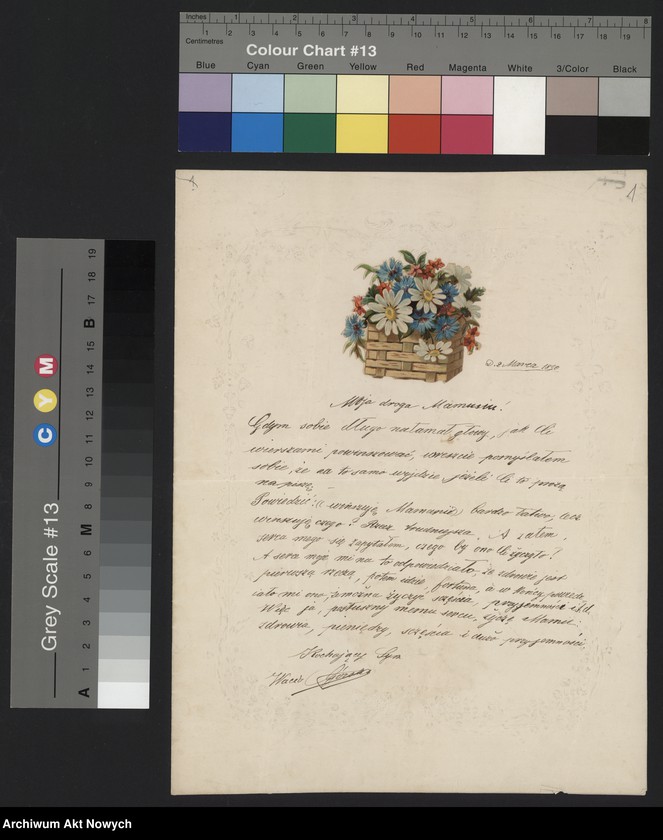 Inches 1 2 3 4 5 6 7 8
Centimetres 1 2 3 4 5 6 7 8 9 10 11 12 13 14 15 16 17 18 19
Colour Chart #13
Blue Cyan Green Yellow Red Magenta White 3/Color Black
Grey Scale #13
C Y M
A 1 2 3 4 5 6 M 8 9 10 11 12 13 14 15 B 17 18 19
1
D. 2 Marca 1890
Moja droga Mamusiu!
Gdym sobie długo nałamał głowy, jak Ci
wierszami powinszować, wreszcie pomyślałem
sobie, że na to samo wyjdzie jeżeli Ci to prozą
napiszę.
Powiedzić: (winszuję Mamunio) bardzo łatwo, lecz
winszuję czego? Rzecz trudniejsza. A zatem,
serca mego się zapytałem, czego by ono Ci życzyło?
A serce moje mi na to odpowiedziało, że zdrowie jest
pierwszą rzeczą, potem idzie fortuna, a w końcu powiedz
iało mi ono, że można życzyć szczęścia, przyjemności i t.d.
Więc ja, posłuszny memu sercu, życzę Mamci
zdrowia, pieniędzy, szczęścia i dużo przyjemności.
Kochający Syn
Wacek
Archiwum Akt Nowych